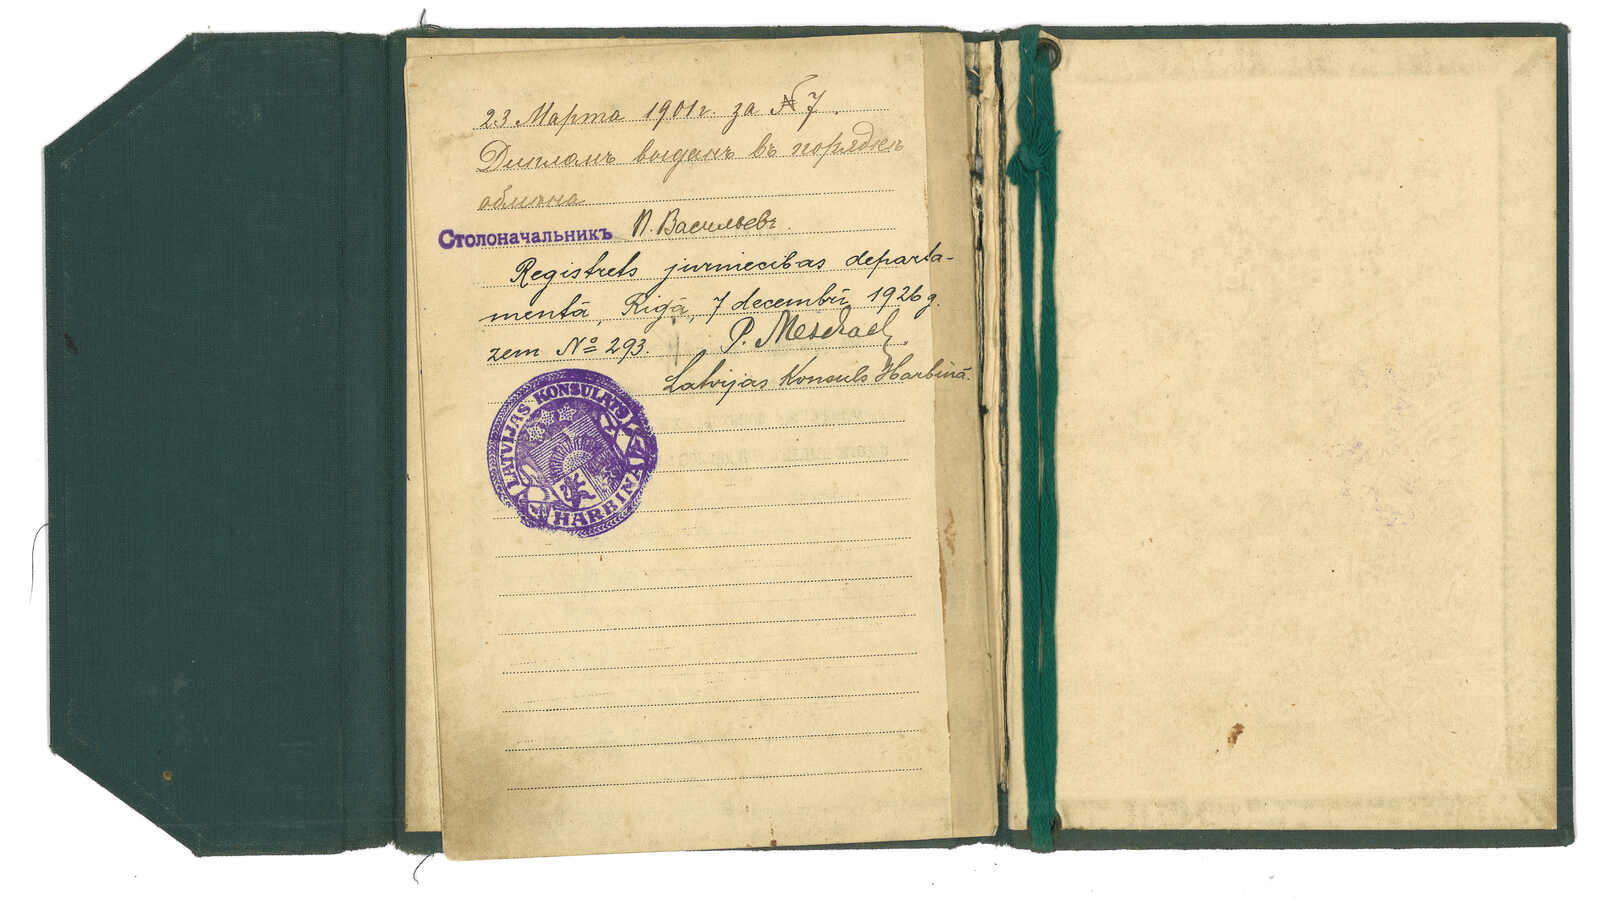 23 Марта 1901г. за № 7.
Дипломъ выданъ въ порядкѣ
обмѣна
Столоначальникъ П. Васильевъ.
Registrēts jurniecības departa-
mentā, Rīgā, 7 decembrī 1926 g.
zem № 293. P.
Latvijas Konsuls Harbinā.
LATVIJAS KONSULATS
HARBINA